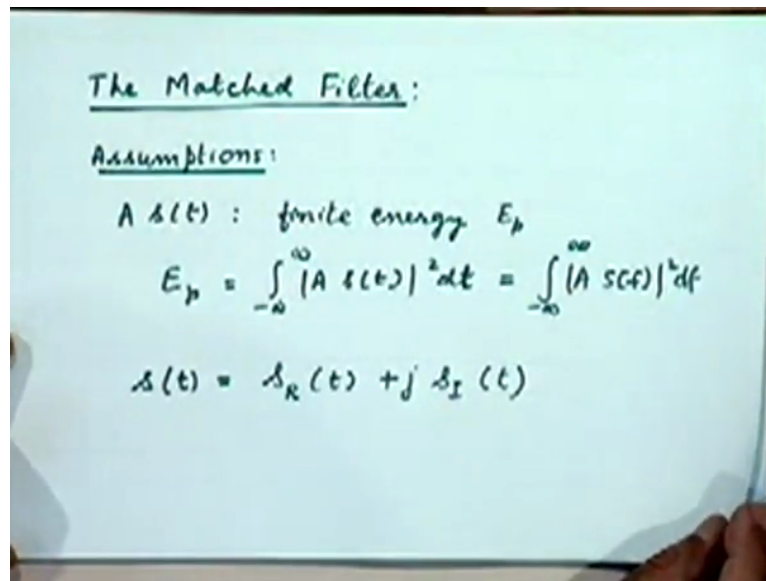 The Matched Filter:
Assumptions:
A s(t) : finite energy E_p
E_p = ∫_{-∞}^{∞} |A s(t)|² dt = ∫_{-∞}^{∞} |A S(f)|² df
s(t) = s_R(t) + j s_I(t)